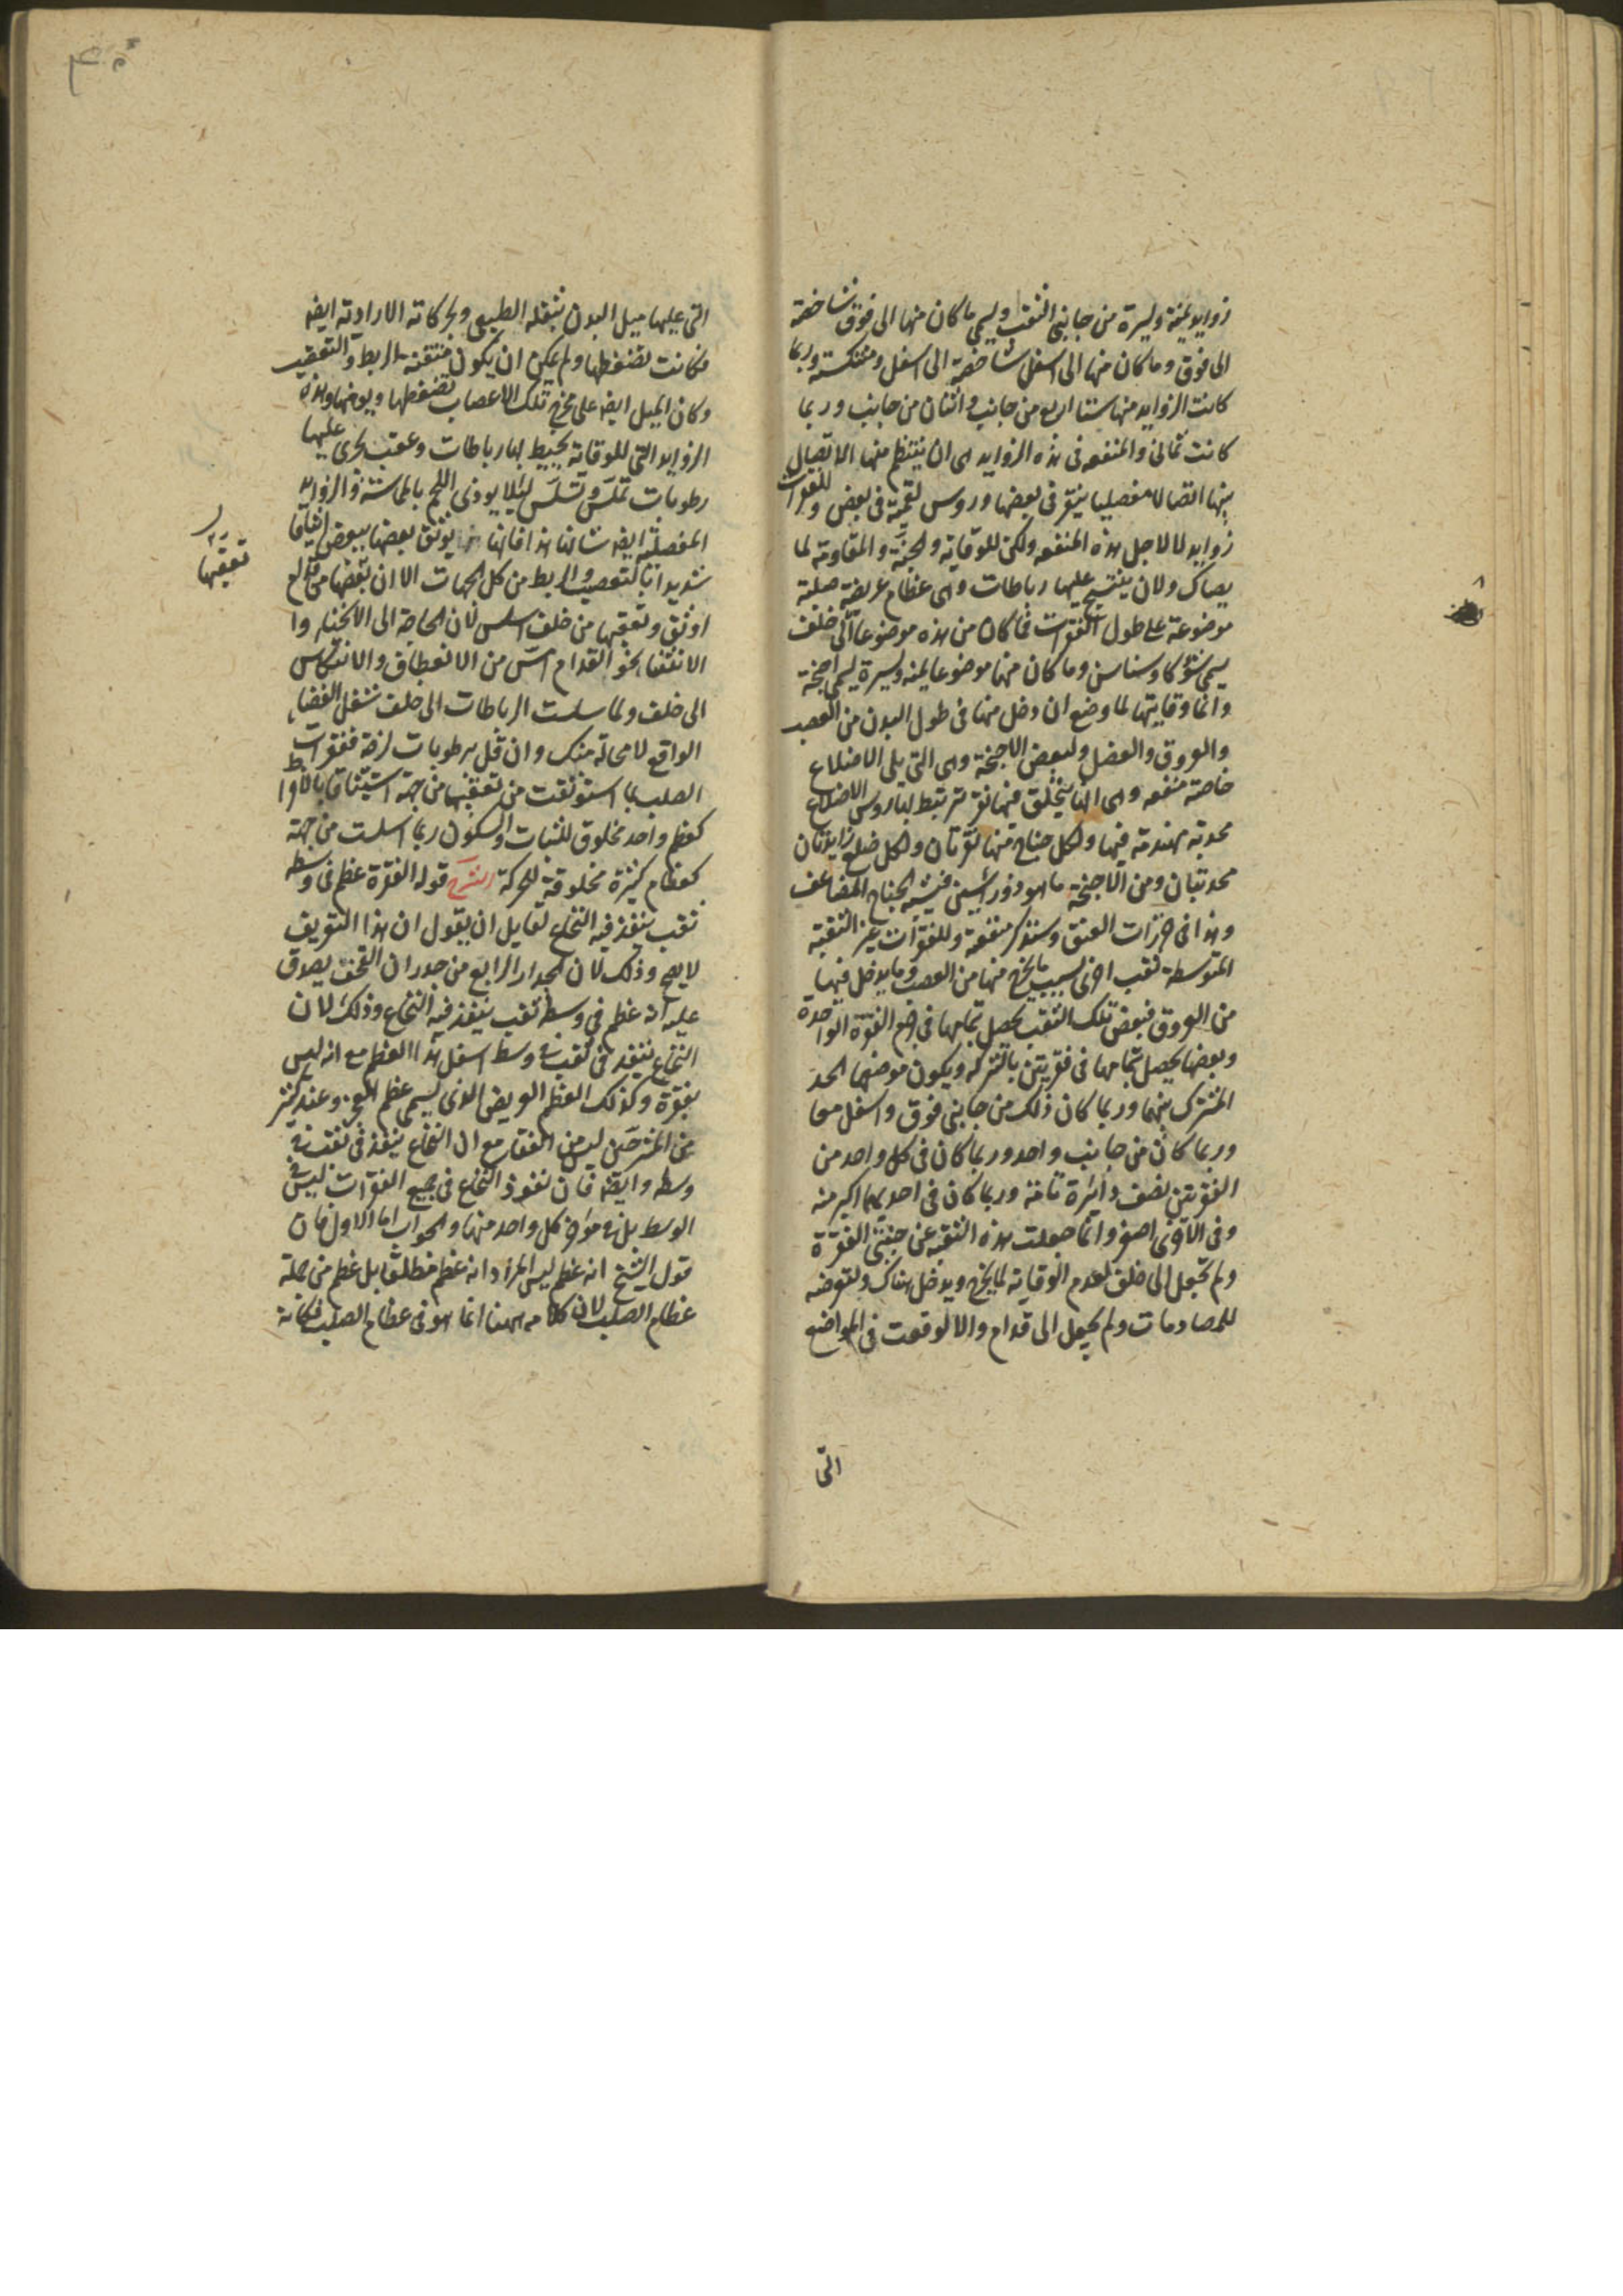 زوايد يمنة ويسرة من جانبى الثقب ويسمى ما كان منها الى فوق شاخصة
الى فوق وما كان منها الى اسفل شاخصة الى اسفل ومنتكسة وربما
كانت الزوايد منها ستا اربع من جانب واثنان من جانب وربما
كانت ثمانى والمنفعه فى هذه الزوايد هى ان ينتظم منها الاتصال
بينها اتصالا مفصليا بنقر فى بعضها وروس لقمية فى بعض وللفقرات
زوايد لا لاجل هذه المنفعه ولكن للوقاية والجنة والمقاومة لما
يصاك ولان ينتسج عليها رباطات وهى عظام عريضة صلبة
موضوعة على طول الفقرات فما كان من هذه موضوعا الى خلف
يسمى شوكا وسناسن وما كان منها موضوعا يمنة ويسرة يسمى اجنحة
وانما وقايتها لما وضع ادخل منها فى طول البدن من العصب
والعروق والعضل ولبعض الاجنحة وهى التى يلى الاضلاع
خاصة منفعه وهى انها يتخلق فيها نقر ترتبط بها روس الاضلاع
محدبة مهندمة فيها ولكل جناح منها نقرتان ولكل ضلع زايدتان
محدبتان ومن الاجنحة ما هو ذو راسين فيشبه الجناح المضاعف
وهذا فى خرزات العنق وسنذكر منفعته وللفقرات غير الثقبة
المتوسطة ثقب اخرى لسبب ما يخرج منها من العصب وما يدخل فيها
من العروق فبعض تلك الثقب يحصل بتمامها فى جرم الفقرة الواحدة
وبعضها يحصل بتمامها فى فقرتين بالشركه ويكون موضعها الحد
المشترك بينهما وربما كان ذلك من جانبى فوق واسفل معا
وربما كان من جانب واحد وربما كان فى كل واحد من
الفقرتين نصف دايرة تامة وربما كان فى احديهما اكبر منه
وفى الاخرى اصغر وانما جعلت هذه الثقبة عن جنبتى الفقرة
ولم تجعل الى خلف لعدم الوقاية لما يخرج ويدخل هناك ولتعرضه
للمصادمات ولم يجعل الى قدام والا لوقعت فى المواضع
التى
التى عليها ميل البدن بثقله الطبيعى وبحركاته الارادية ايضا
فكانت تضغطها ولم يمكن ان يكون متقنة الربط والتعقيب
وكان الميل ايضا على مخرج تلك الاعصاب بضغطها ويوهنها وهذه
الزوايد التى للوقاية يحيط بها رباطات وعقب يجرى عليها
رطوبات تملس وتسلس لئلا يوذى اللحم بالمماسة والزوايد
المفصلية ايضا شانها هذا فانها يوثق بعضها ببعض ايثاقا
شديدا بالتعصيب والربط من كل الجهات الا ان تعقيبها من قدام
اوثق وتعقيبها من خلف اسلس لان الحاجة الى الانحناء وا
الانثناء نحو القدام امس من الانعطاف والانتكاس
الى خلف ولما سلست الرباطات الى خلف شغل الفضاء
الواقع لا محالة هناك وان قل برطوبات لزجة ففقرات
الصلب بما استوثقت من تعقيبها من جهة استيثاقا بالافراط
كعظم واحد مخلوق للثبات والسكون وبما سلست من جهة
كعظام كثيرة مخلوقة للحركة الشرح قوله الفقرة عظم فى وسطه
ثقب ينفذ فيه النخاع لقايل ان يقول ان هذا التعريف
لا يصح وذلك لان الجدار الرابع من جدران القحف يصدق
عليه انه عظم فى وسطه ثقب ينفذ فيه النخاع وذلك لان
النخاع ينفذ فى ثقب فى وسط اسفل هذا العظم مع انه ليس
بفقرة وكذلك العظم العريض الذى يسمى عظم العجز وعند كثير
من المشرحين ليس من الفقار مع ان النخاع ينفذ فى ثقب فى
وسطه وايضا فان نفوذ النخاع فى جميع الفقرات ليس فى
الوسط بل فى موخر كل واحد منها والجواب اما الاول فان
قول الشيخ انه عظم ليس المراد انه عظم مطلقا بل عظم من جملة
عظام الصلب لان كلامه ههنا انما هو فى عظام الصلب فكانه
تعقيبها